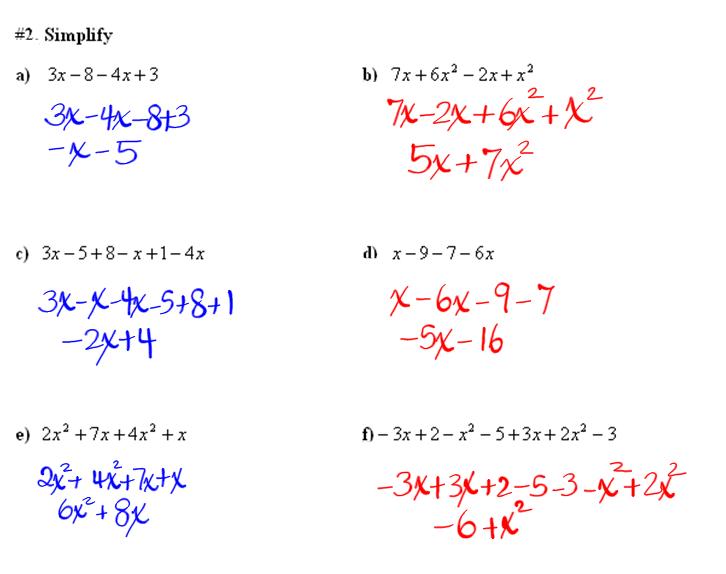 #2. Simplify
a) 3x – 8 – 4x + 3
3x – 4x – 8 + 3
– x – 5
b) 7x + 6x² – 2x + x²
7x – 2x + 6x² + x²
5x + 7x²
c) 3x – 5 + 8 – x + 1 – 4x
3x – x – 4x – 5 + 8 + 1
– 2x + 4
d) x – 9 – 7 – 6x
x – 6x – 9 – 7
– 5x – 16
e) 2x² + 7x + 4x² + x
2x² + 4x² + 7x + x
6x² + 8x
f) – 3x + 2 – x² – 5 + 3x + 2x² – 3
– 3x + 3x + 2 – 5 – 3 – x² + 2x²
– 6 + x²